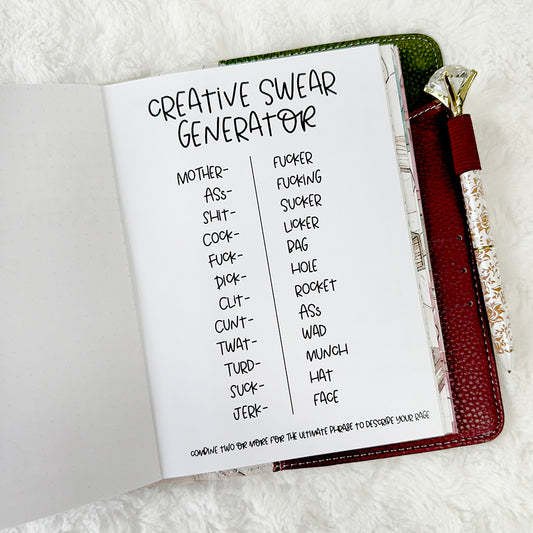 CREATIVE SWEAR
GENERATOR
MOTHER- FUCKER
ASS- FUCKING
SHIT- SUCKER
COCK- LICKER
FUCK- BAG
DICK- HOLE
CLIT- ROCKET
CUNT- ASS
TWAT- WAD
TURD- MUNCH
SUCK- HAT
JERK- FACE
COMBINE TWO OR MORE FOR THE ULTIMATE PHRASE TO DESCRIBE YOUR RAGE